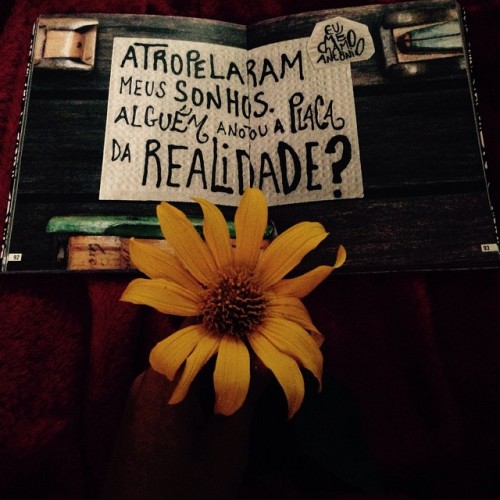 EU ME
CHAMO
ANTÔNIO
ATROPELARAM
MEUS SONHOS.
ALGUÉM ANOTOU A PLACA
DA REALIDADE?
92
93